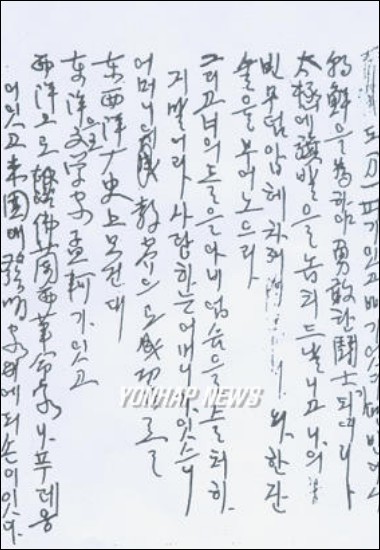 피가 있고 뼈가 잇
朝鮮을 爲하야 勇敢한 鬪士가 되여라
太極에 旗발을 놉피 드날니고 나의
빈 무덤 압헤 차져 와 한 잔
술을 부어 노으라
그리고 너의들은 아비 업슴을 슬퍼히
지 말어라 사랑하는 어머니가 잇스니
어머니의 敎育으로 成功
東西洋 史上 보건대
東洋으로 文學家 孟軻가 잇고
西洋으로 佛蘭西 革命家 나푸레옹
이 잇고 米國에 發明家 에디손이 잇다
YONHAP NEWS